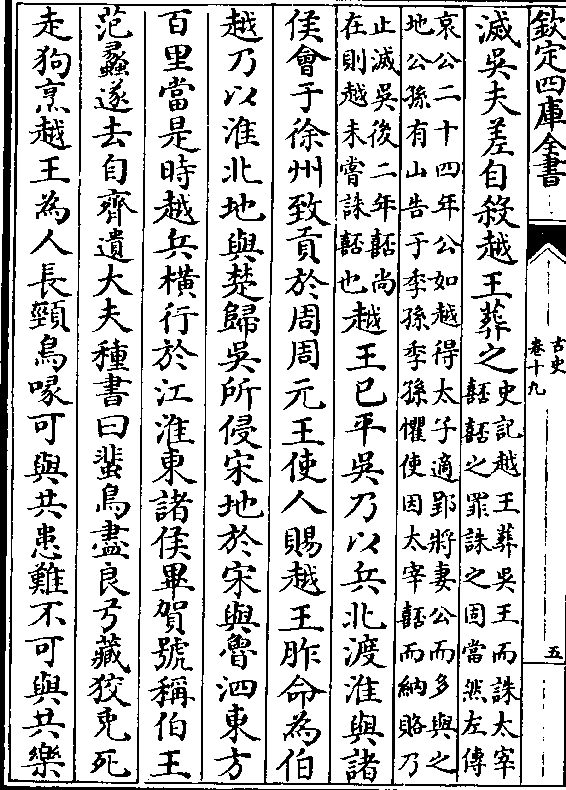 欽定四庫全書
古史
卷十九
五
滅吳夫差自殺越王葬之
史記越王葬吳王而誅太宰
嚭嚭之罪誅之固當然左傳
哀公二十四年公如越得太子適郢將妻公而多與之
地公孫有山告于季孫季孫懼使因太宰嚭而納賂乃
止滅吳後二年嚭尚
在則越未嘗誅嚭也
越王已平吳乃以兵北渡淮與諸
侯會于徐州致貢於周周元王使人賜越王胙命為伯
越乃以淮北地與楚歸吳所侵宋地於宋與魯泗東方
百里當是時越兵橫行於江淮東諸侯畢賀號稱伯王
范蠡遂去自齊遺大夫種書曰蜚鳥盡良弓藏狡兎死
走狗烹越王為人長頸鳥喙可與共患難不可與共樂